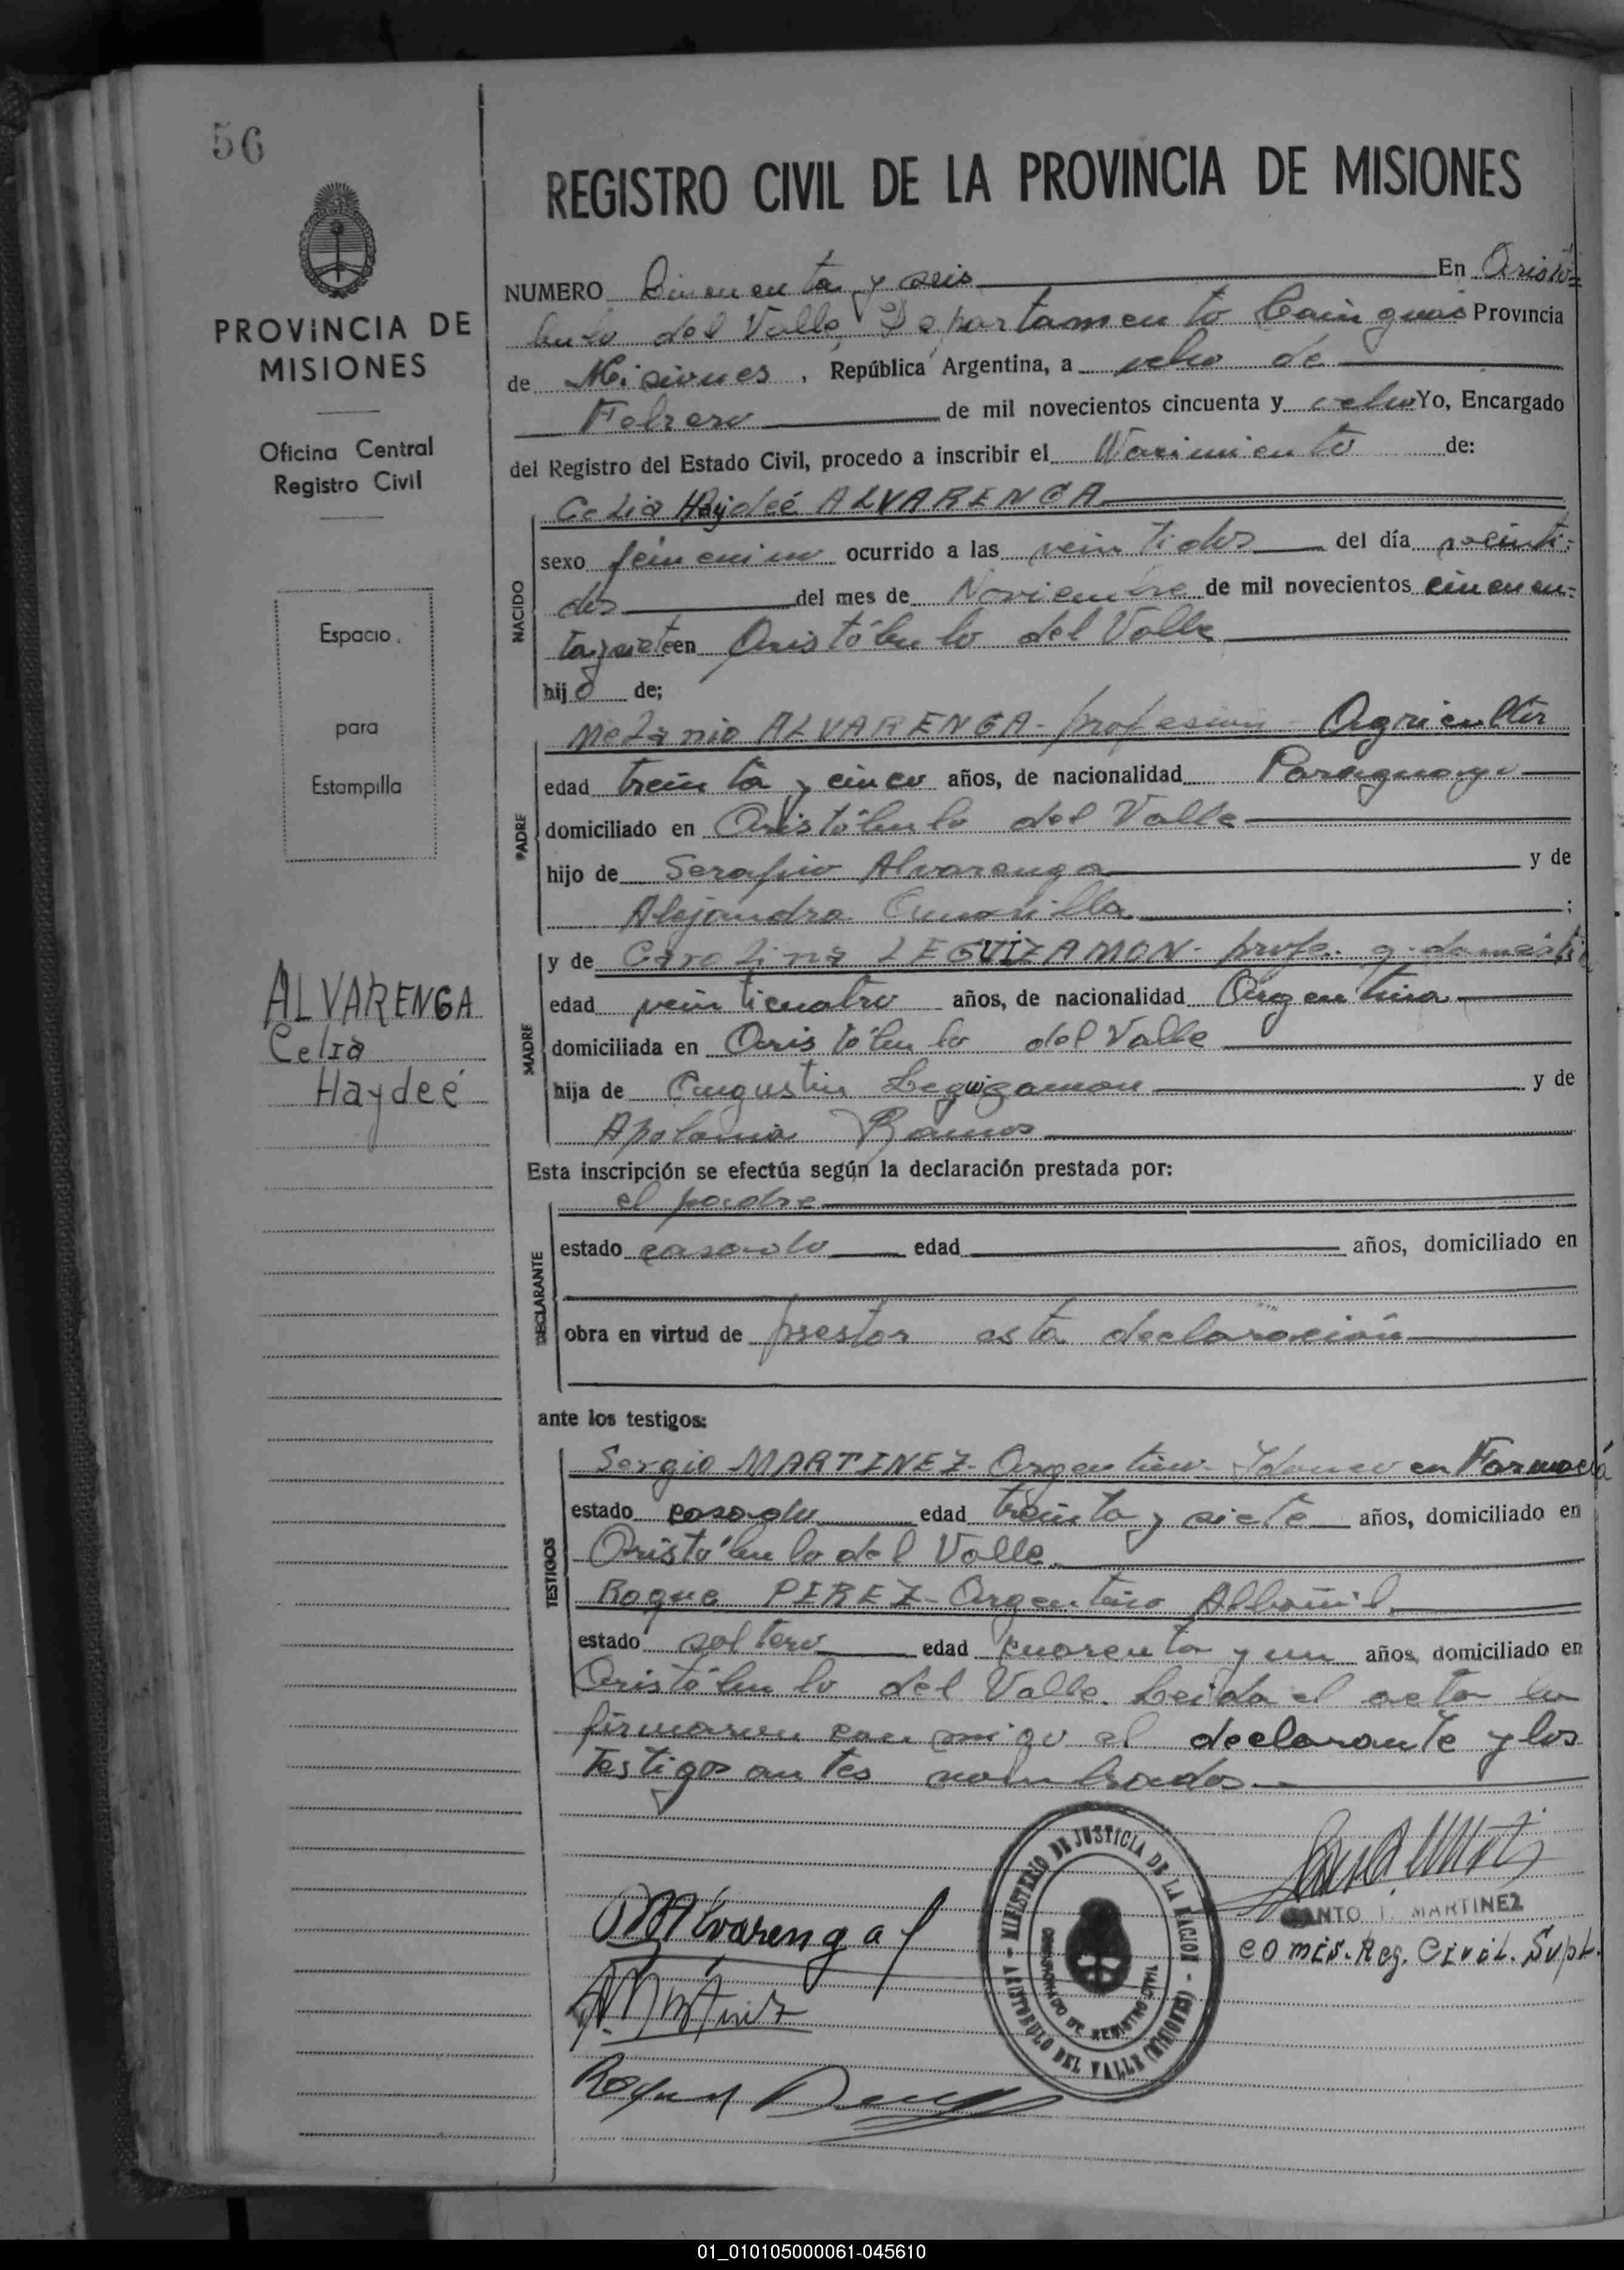 56
PROVINCIA DE
MISIONES
Oficina Central
Registro Civil
Espacio
para
Estampilla
ALVARENGA
Celia
Haydeé
REGISTRO CIVIL DE LA PROVINCIA DE MISIONES
NUMERO Cincuenta y seis En Aristó=
bulo del Valle, Departamento Cainguas Provincia
de Misiones, República Argentina, a ocho de
Febrero de mil novecientos cincuenta y ocho Yo, Encargado
del Registro del Estado Civil, procedo a inscribir el Nacimiento de:
NACIDO
Celia Haydeé ALVARENGA
sexo femenino ocurrido a las veintidos del día veinti=
dos del mes de Noviembre de mil novecientos cincuen=
taysiete en Aristóbulo del Valle
hij a de;
PADRE
Melanio ALVARENGA - profesion - Agricultor
edad treinta y cinco años, de nacionalidad Paraguayo
domiciliado en Aristóbulo del Valle
hijo de Serafin Alvarenga y de
Alejandra Amarilla ;
MADRE
y de Carolina LEGUIZAMON - profe. q. domésti
edad veinticuatro años, de nacionalidad Argentina
domiciliada en Aristóbulo del Valle
hija de Augustin Leguizamon y de
Apolonia Ramos
Esta inscripción se efectúa según la declaración prestada por:
DECLARANTE
el padre
estado casado edad años, domiciliado en
obra en virtud de prestar esta declaración
ante los testigos:
TESTIGOS
Sergio MARTINEZ - Argentino - Idoneo en Farmacia
estado casado edad treinta y siete años, domiciliado en
Aristóbulo del Valle
Roque PEREZ - Argentino Albañil
estado soltero edad cuarenta y un años, domiciliado en
Aristóbulo del Valle. Leida el acta la
firmaron conmigo el declarante y los
testigos antes nombrados
MINISTERIO DE JUSTICIA DE LA NACION - ARISTOBULO DEL VALLE (MISIONES) -
REGISTRO CIVIL
MAlvarenga
SANTO I. MARTINEZ
comis. Reg. Civil. Supl.
01_010105000061-045610